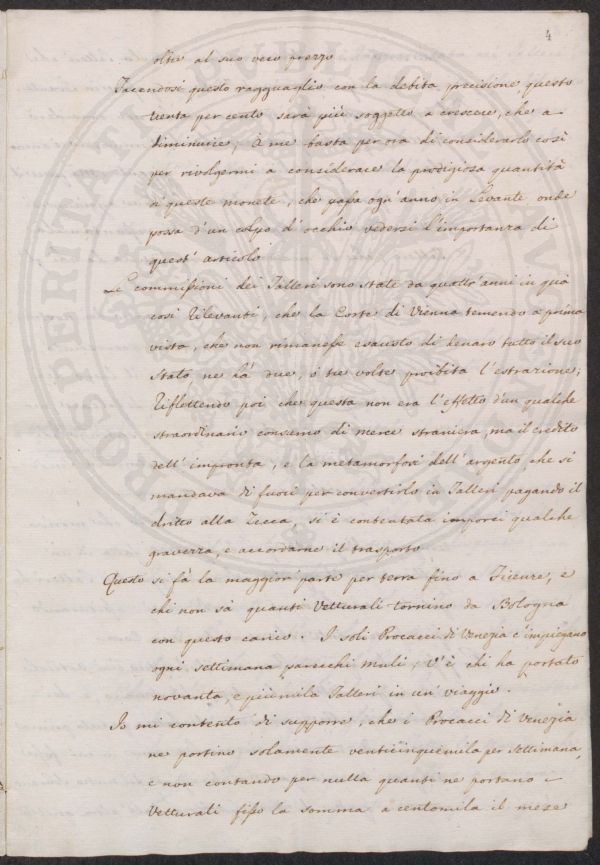 4
oltre al suo vero prezzo
Facendosi questo ragguaglio con la debita precisione, questo
trenta per cento sarà più soggetto a crescere, che a
diminuire; A me basta per ora di considerarlo così
per rivolgermi a considerare la prodigiosa quantità
di queste monete, che passa ogn'anno in Levante onde
possa d'un colpo d'occhio vedersi l'importanza di
quest'articolo
Le commissioni dei Talleri sono state da quattr'anni in quà
così rilevanti, che la Corte di Vienna temendo a prima
vista, che non rimanesse esausto di denaro tutto il suo
Stato, ne hà due, ò tre volte proibita l'estrazione;
Riflettendo poi che questa non era l'effetto d'un qualche
straordinario consumo di merce straniera, ma il credito
dell'impronta, e la metamorfosi dell'argento, che si
mandava di fuori per convertirlo in Talleri pagando il
dritto alla Zecca, si è contentata imporci qualche
gravezza, e accordarne il trasporto
Questo si fà la maggior parte per terra fino a Firenze, e
chi non sà quanti Vetturali tornino da Bologna
con questo carico. I soli Procacci di Venezia c'impiegano
ogni settimana parecchi muli, v'è chi ha portato
novanta, e più mila Talleri in un viaggio.
Io mi contento di supporre, che i Procacci di Venezia
ne portino solamente venticinquemila per settimana,
e non contando per nulla quanti ne portano i
Vetturali fisso la somma a centomila il mese
PROSPERITATI PUBLICAE